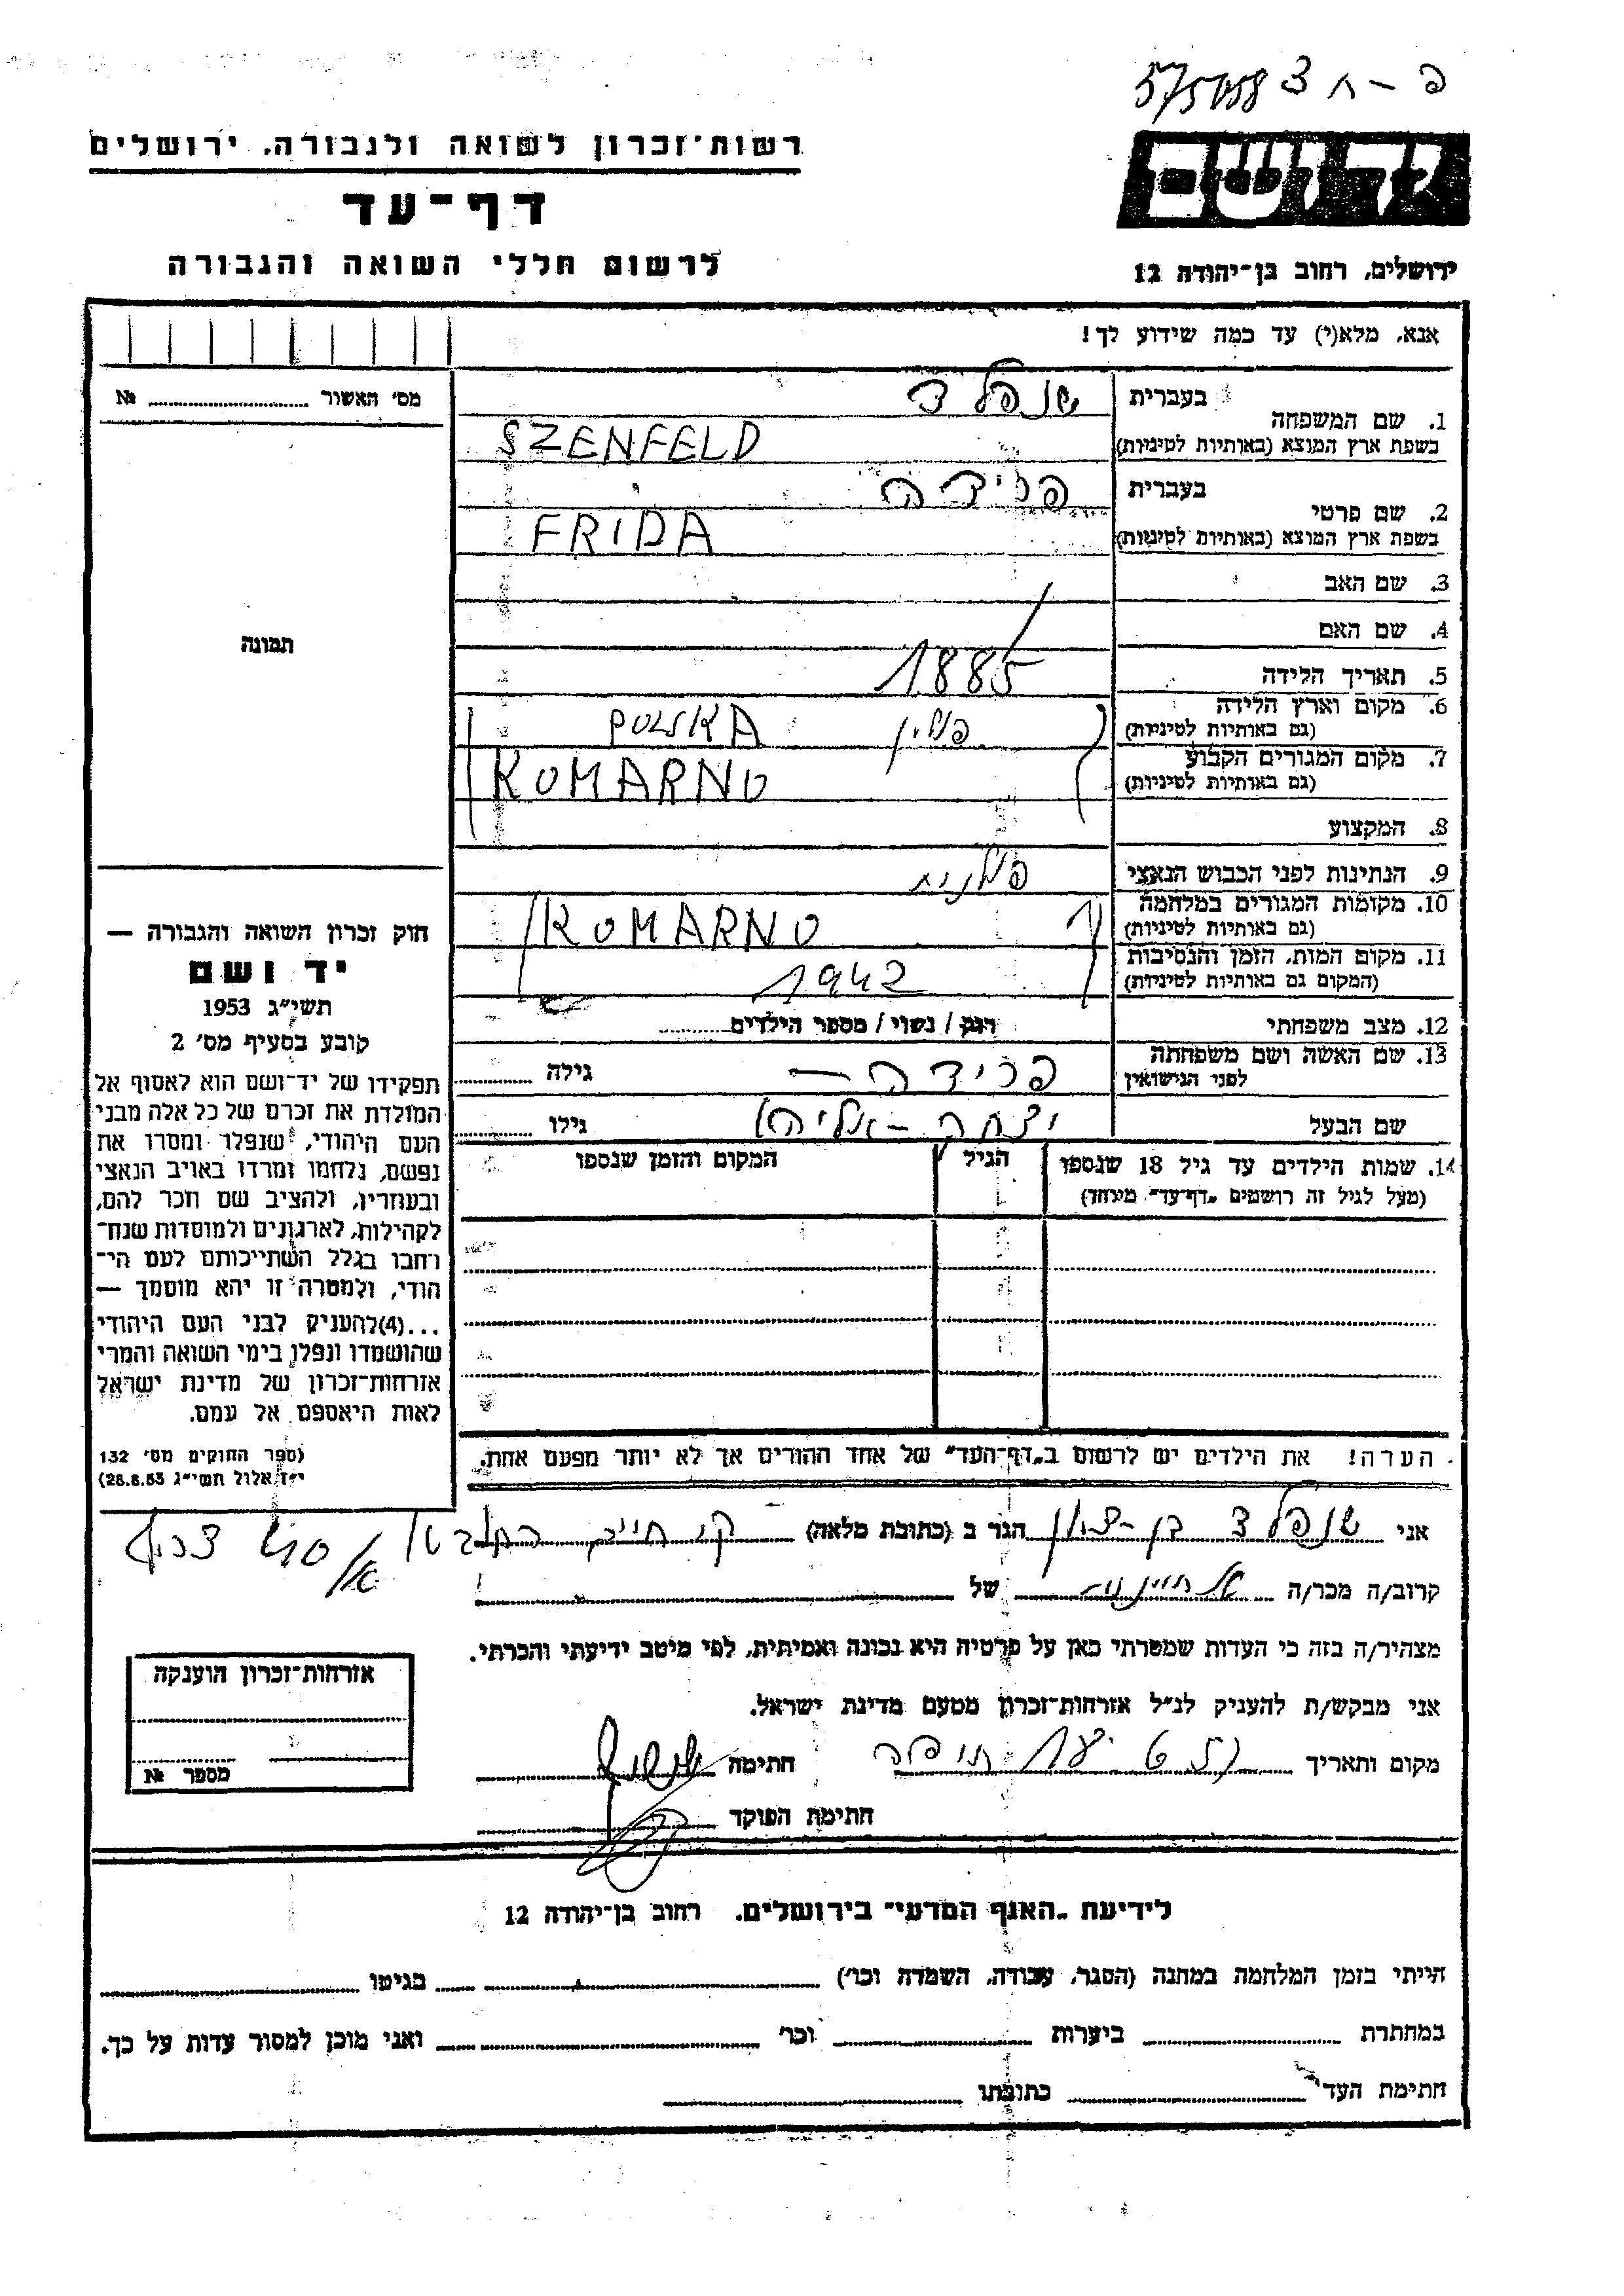 פ - ח 3 575158
יד ושם
רשות־זכרון לשואה ולגבורה, ירושלים
דף־עד
לרשום חללי השואה והגבורה
ירושלים, רחוב בן־יהודה 12
אנא, מלא(י) עד כמה שידוע לך!
מס׳ האשור № 
1. שם המשפחה
בעברית שנפלד
בשפת ארץ המוצא (באותיות לטיניות) SZENFELD
2. שם פרטי
בעברית פרידה
בשפת ארץ המוצא (באותיות לטיניות) FRIDA
3. שם האב
4. שם האם
5. תאריך הלידה 1885
6. מקום וארץ הלידה פולין POLSKA
(גם באותיות לטיניות)
7. מקום המגורים הקבוע KOMARNO
(גם באותיות לטיניות)
8. המקצוע
9. הנתינות לפני הכבוש הנאצי פולנית
10. מקומות המגורים במלחמה KOMARNO
(גם באותיות לטיניות)
11. מקום המות, הזמן והנסיבות 1942
(המקום גם באותיות לטיניות)
12. מצב משפחתי רווק / נשוי / מספר הילדים
13. שם האשה ושם משפחתה פרידה — גילה
לפני הנישואין
שם הבעל יצחק - אליהו גילו
14. שמות הילדים עד גיל 18 שנספו הגיל המקום והזמן שנספו
(מעל לגיל זה רושמים „דף־עד״ מיוחד)
תמונה
חוק זכרון השואה והגבורה —
יד ושם
תשי״ג 1953
קובע בסעיף מס׳ 2
תפקידו של יד־ושם הוא לאסוף אל
המולדת את זכרם של כל אלה מבני
העם היהודי, שנפלו ומסרו את
נפשם, נלחמו ומרדו באויב הנאצי
ובעוזריו, ולהציב שם וזכר להם,
לקהילות, לארגונים ולמוסדות שנח־
רחבו בגלל השתייכותם לעם הי־
הודי, ולמטרה זו יהא מוסמך —
...(4)להעניק לבני העם היהודי
שהושמדו ונפלו בימי השואה והמרי
אזרחות־זכרון של מדינת ישראל
לאות היאספם אל עמם.
(ספר החוקים מס׳ 132
י״ז אלול תשי״ג 28.8.53)
הערה! את הילדים יש לרשום ב„דף־העד״ של אחד ההורים אך לא יותר מפעם אחת.
אני שנפלד בן-ציון הגר ב (כתובת מלאה) קר חיים
קרוב/ה מכר/ה של
מצהיר/ה בזה כי העדות שמסרתי כאן על פרטיה היא נכונה ואמיתית, לפי מיטב ידיעתי והכרתי.
אני מבקש/ת להעניק לנ״ל אזרחות־זכרון מטעם מדינת ישראל.
מקום ותאריך חיפה חתימה
חתימת הפוקד
אזרחות־זכרון הוענקה
מספר №
לידיעת „האגף המדעי״ בירושלים, רחוב בן־יהודה 12
הייתי בזמן המלחמה במחנה (הסגר, עבודה, השמדה וכו׳) בגיטו
במחתרת ביערות וכו׳ ואני מוכן למסור עדות על כך.
חתימת העד כתובתו